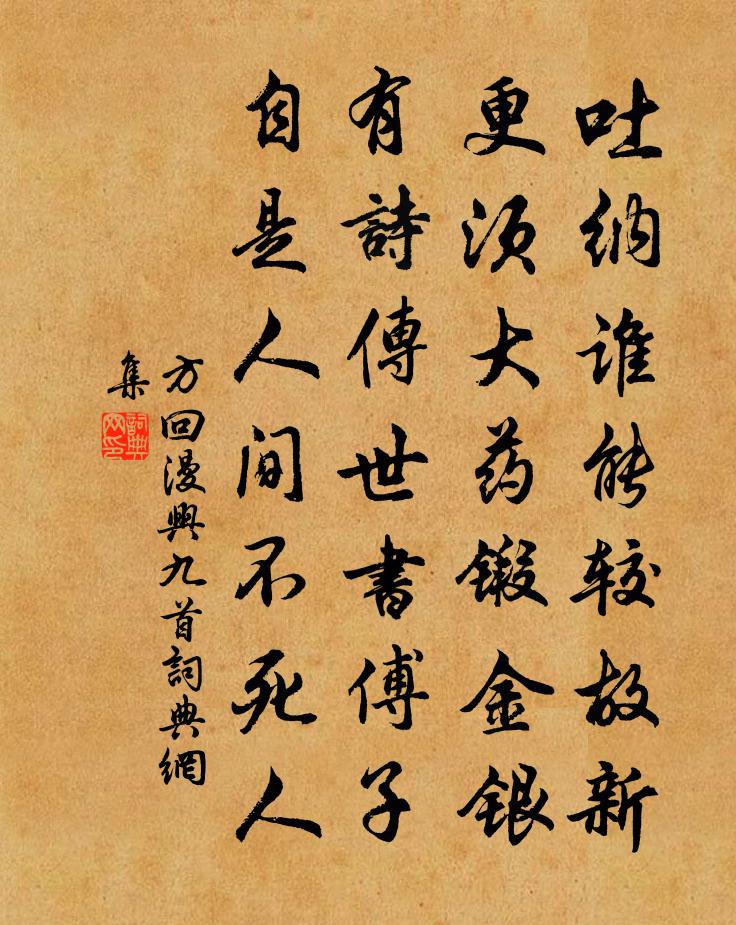 吐纳谁能较故新
更须大药锻金银
有詩傳世書傅子
自是人间不死人
方回漫興九首詞典網
集
詞典
网印